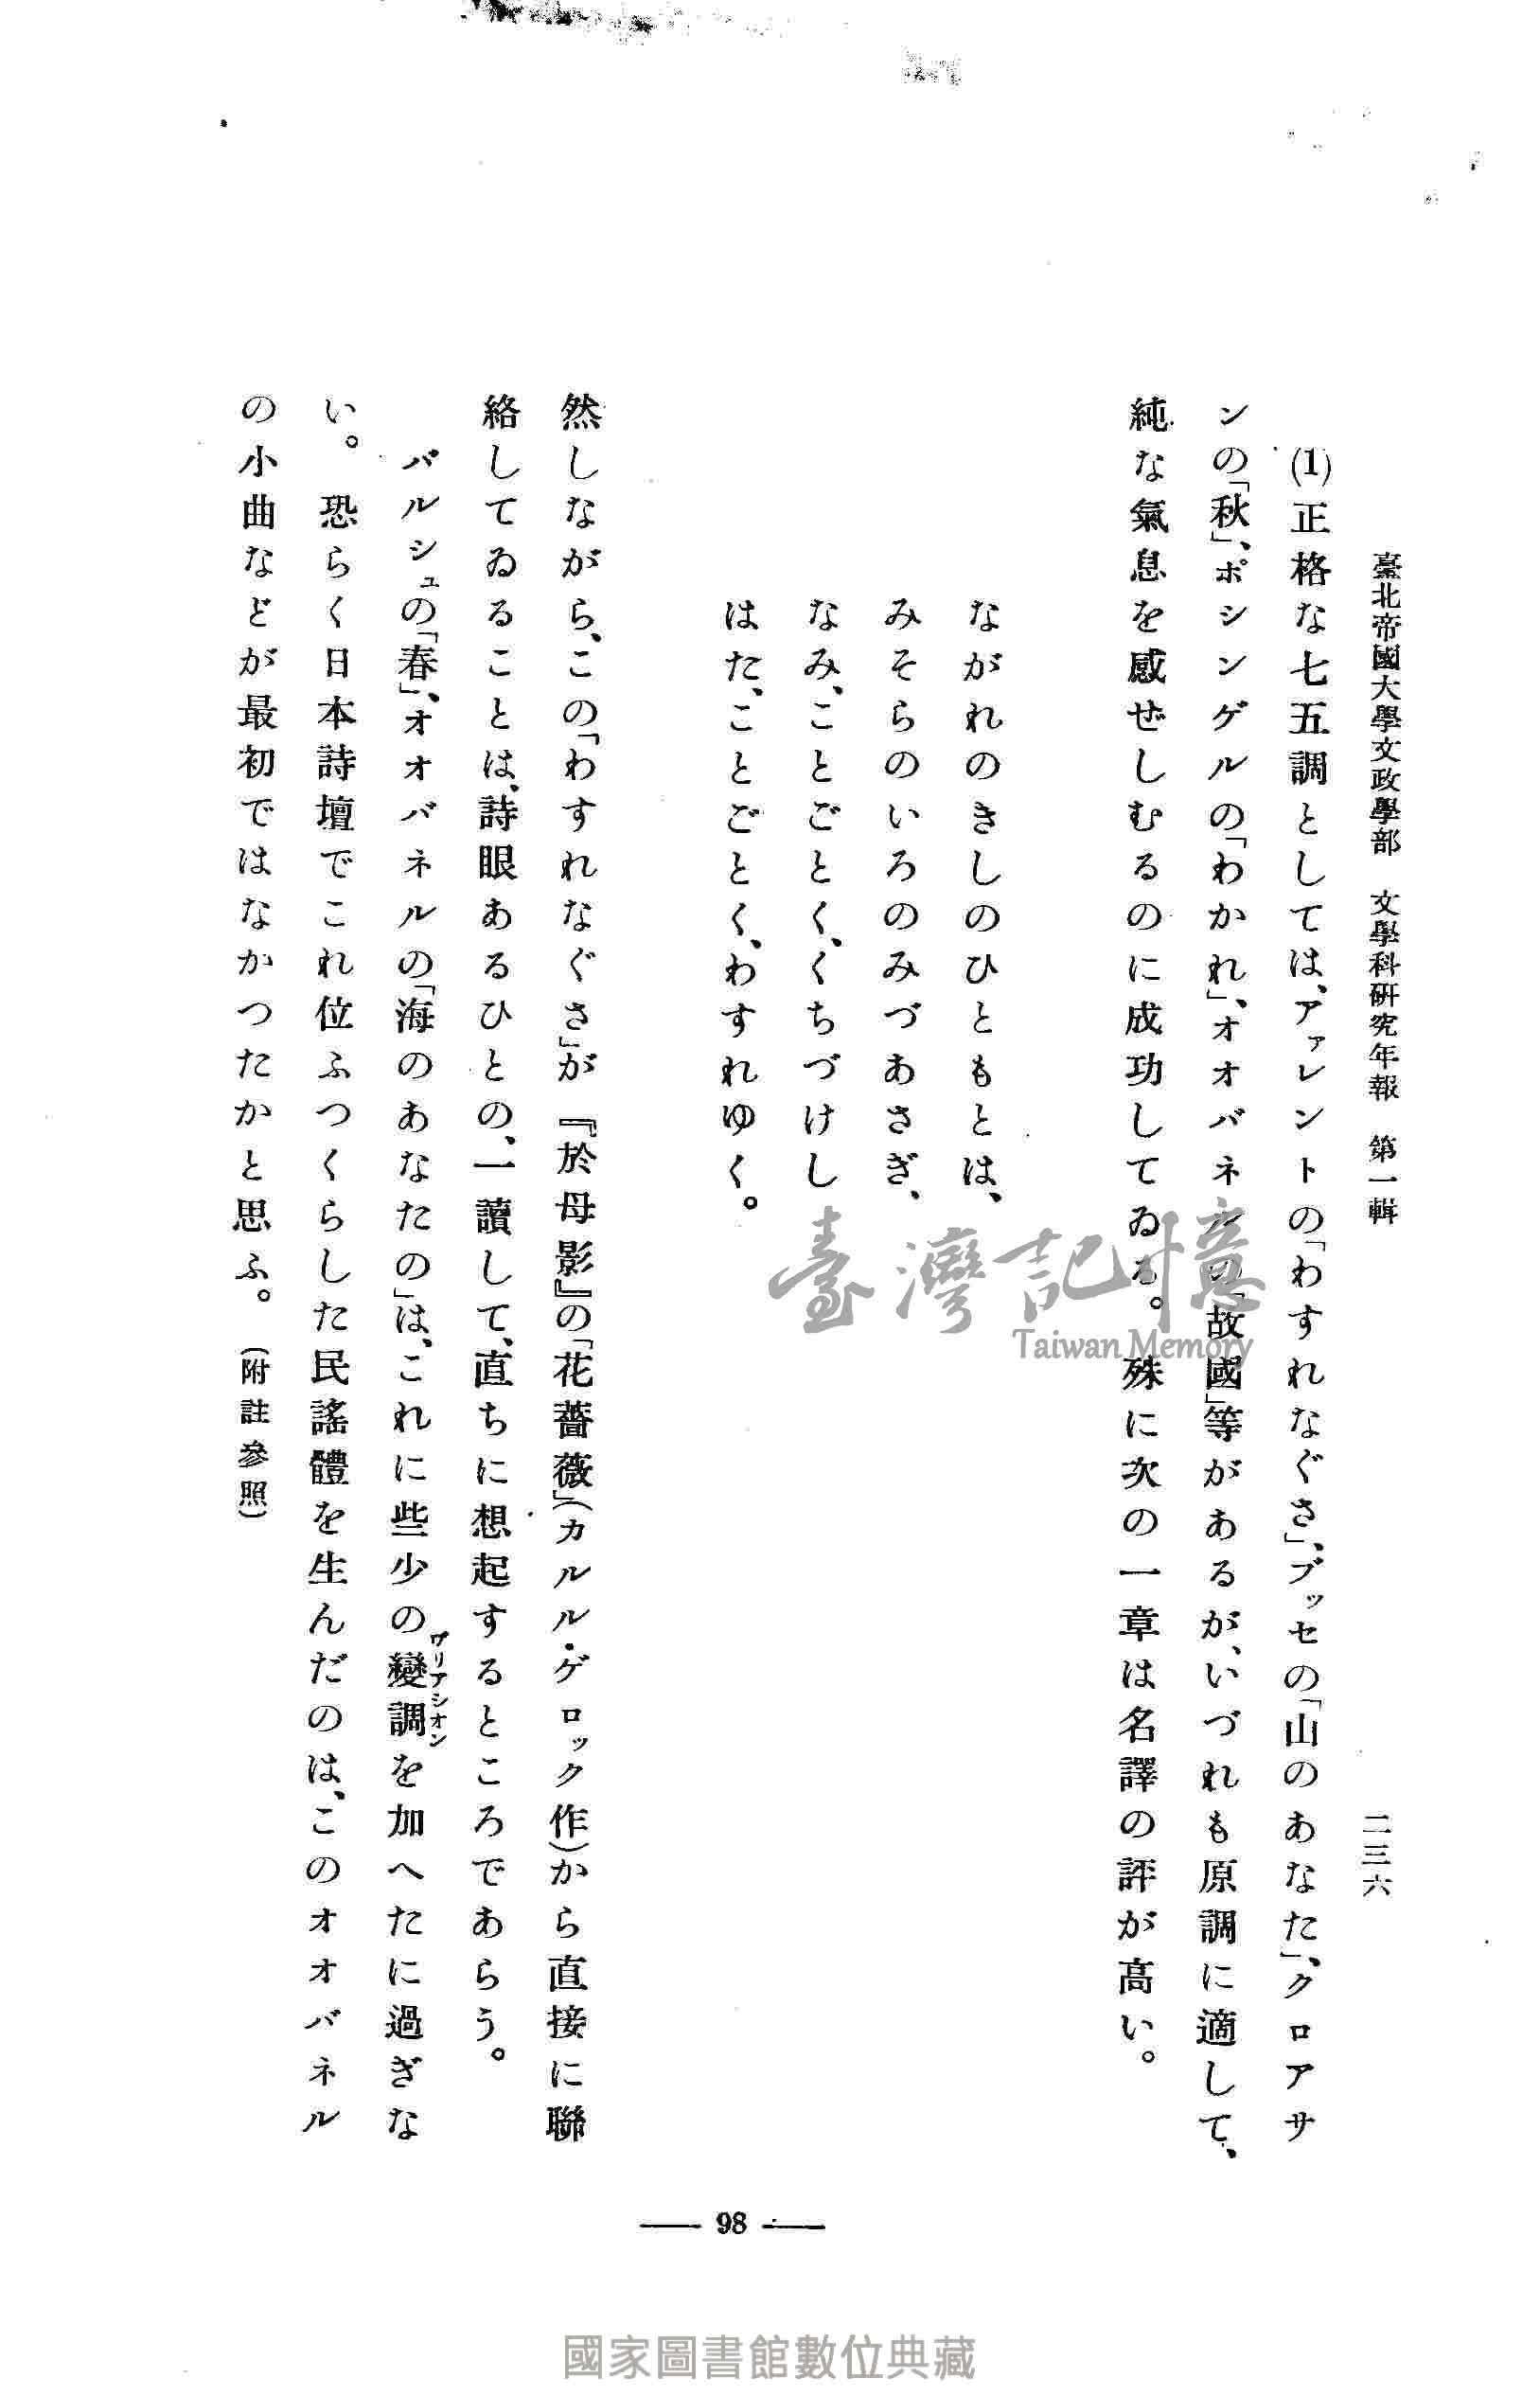 臺北帝國大學文政學部　文學科硏究年報　第一輯
二三六
(1)正格な七五調としては、アァレントの「わすれなぐさ」、ブッセの「山のあなた」、クロアサ
ンの「秋」、ポシンゲルの「わかれ」、オオバネルの「故國」等があるが、いづれも原調に適して、
純な氣息を感ぜしむるのに成功してゐる。　殊に次の一章は名譯の評が高い。
ながれのきしのひともとは、
みそらのいろのみづあさぎ、
なみ、ことごとく、くちづけし
はた、ことごとく、わすれゆく。
然しながら、この「わすれなぐさ」が『於母影』の「花薔薇」(カルル・ゲロック作)から直接に聯
絡してゐることは、詩眼あるひとの、一讀して、直ちに想起するところであらう。
バルシュの「春」、オオバネルの「海のあなたの」は、これに些少の變調を加へたに過ぎな
ヴリアシオン
い。　恐らく日本詩壇でこれ位ふつくらした民謠體を生んだのは、このオオバネル
の小曲などが最初ではなかつたかと思ふ。　(附註參照)
98
臺灣記憶
Taiwan Memory
國家圖書館數位典藏